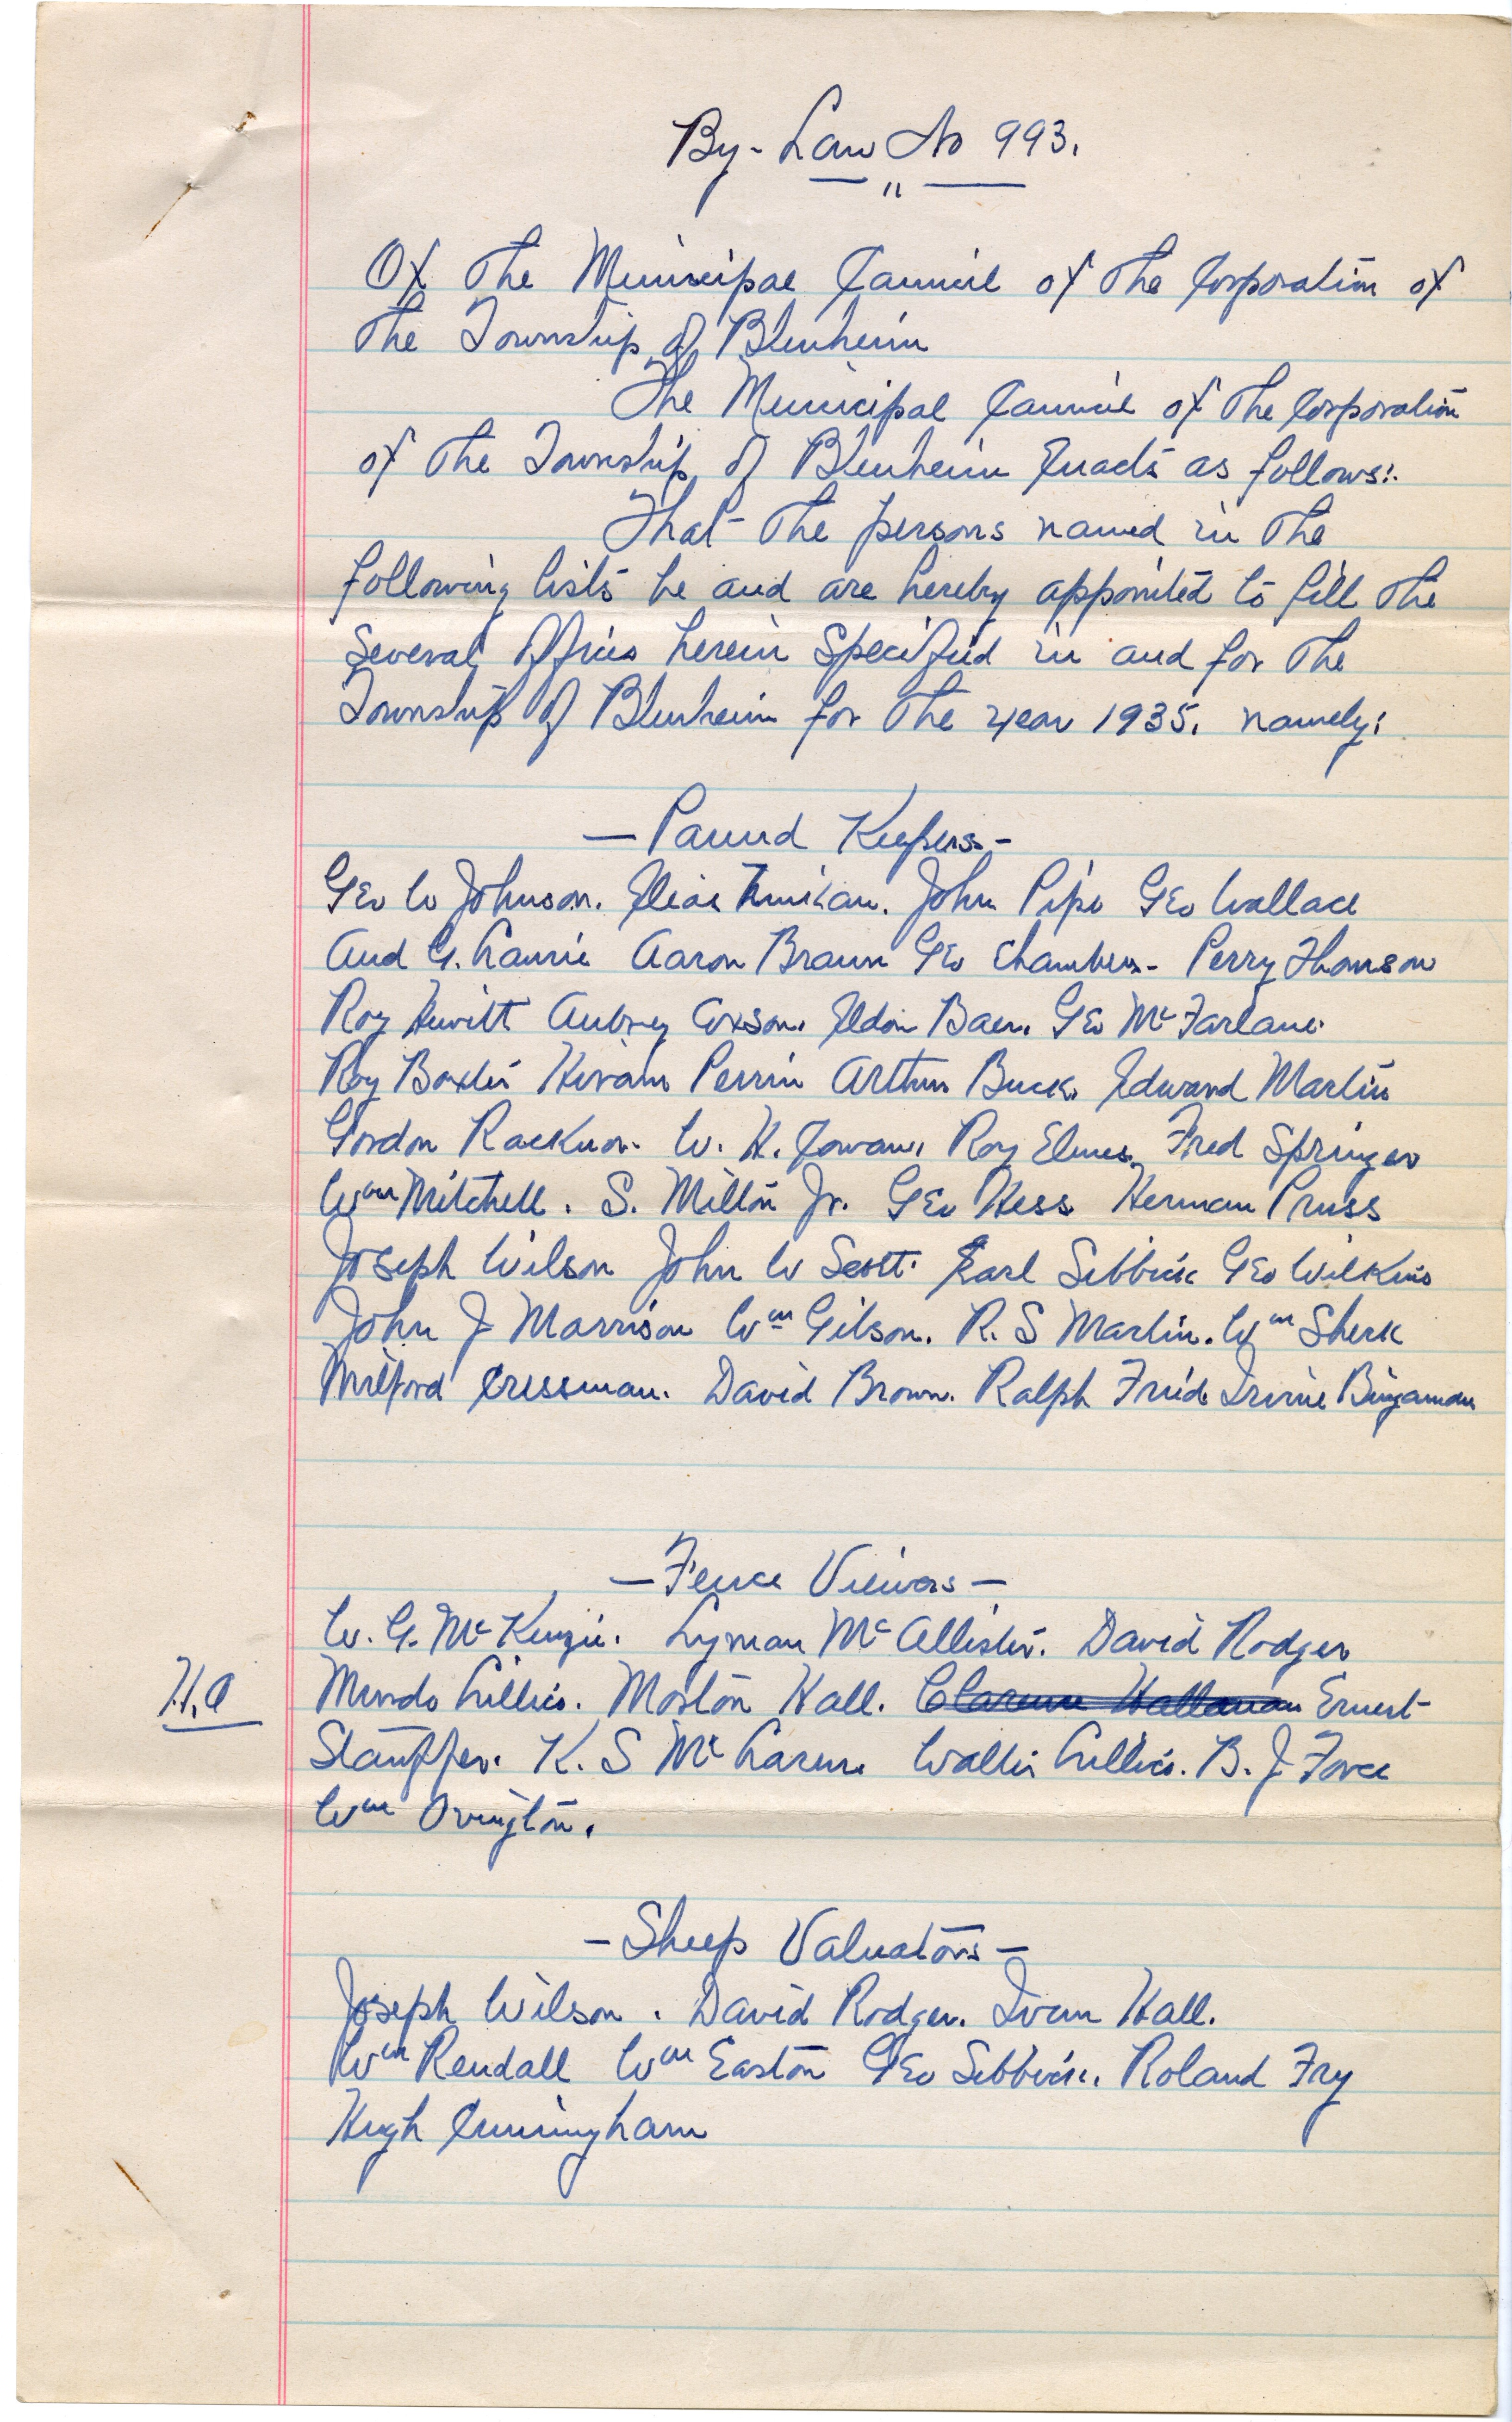 By-Law No 993.
Of The Municipal Council of The Corporation of
The Township of Blenheim
The Municipal Council of The Corporation
of The Township of Blenheim Enacts as follows:.
That The persons named in The
following lists be and are hereby appointed to fill The
Several Offices herein Specified in and for The
Township of Blenheim for The year 1935. namely:
— Pound Keepers —
Geo W Johnson. John Pipe Geo Wallace
And G. Laurie Aaron Braun Geo Chambers - Perry Thomson
Roy Hewitt Aubrey Axson. Eldon Baer. Geo McFarlane.
Roy Baxter Hiram Perrin Arthur Buck. Edward Martin
Gordon W. H. Cowan. Roy Elmes. Fred Springer
Wm Mitchell. S. Milton Jr. Geo Hess Herman Pruss
Joseph Wilson John W Scott. Earl Sibbick Geo Wilkins
John J Morrison Wm Gilson. R. S Martin. Wm Sherk
Milford Cressman. David Brown. Ralph Fried. Irvine Bingaman
— Fence Viewers —
W. G. McKenzie. Lyman McAllister. David Rodger
H.A Mundo Lillico. Morton Hall. Clarence Hallman Ernest
Stauffer. K. S McLaren. Walter Lillico. B. J Force
Wm Ovington.
— Sheep Valuators —
Joseph Wilson. David Rodger. Ivan Hall.
Wm Rendall Wm Easton Geo Sibbick. Roland Fry
Hugh Cunningham